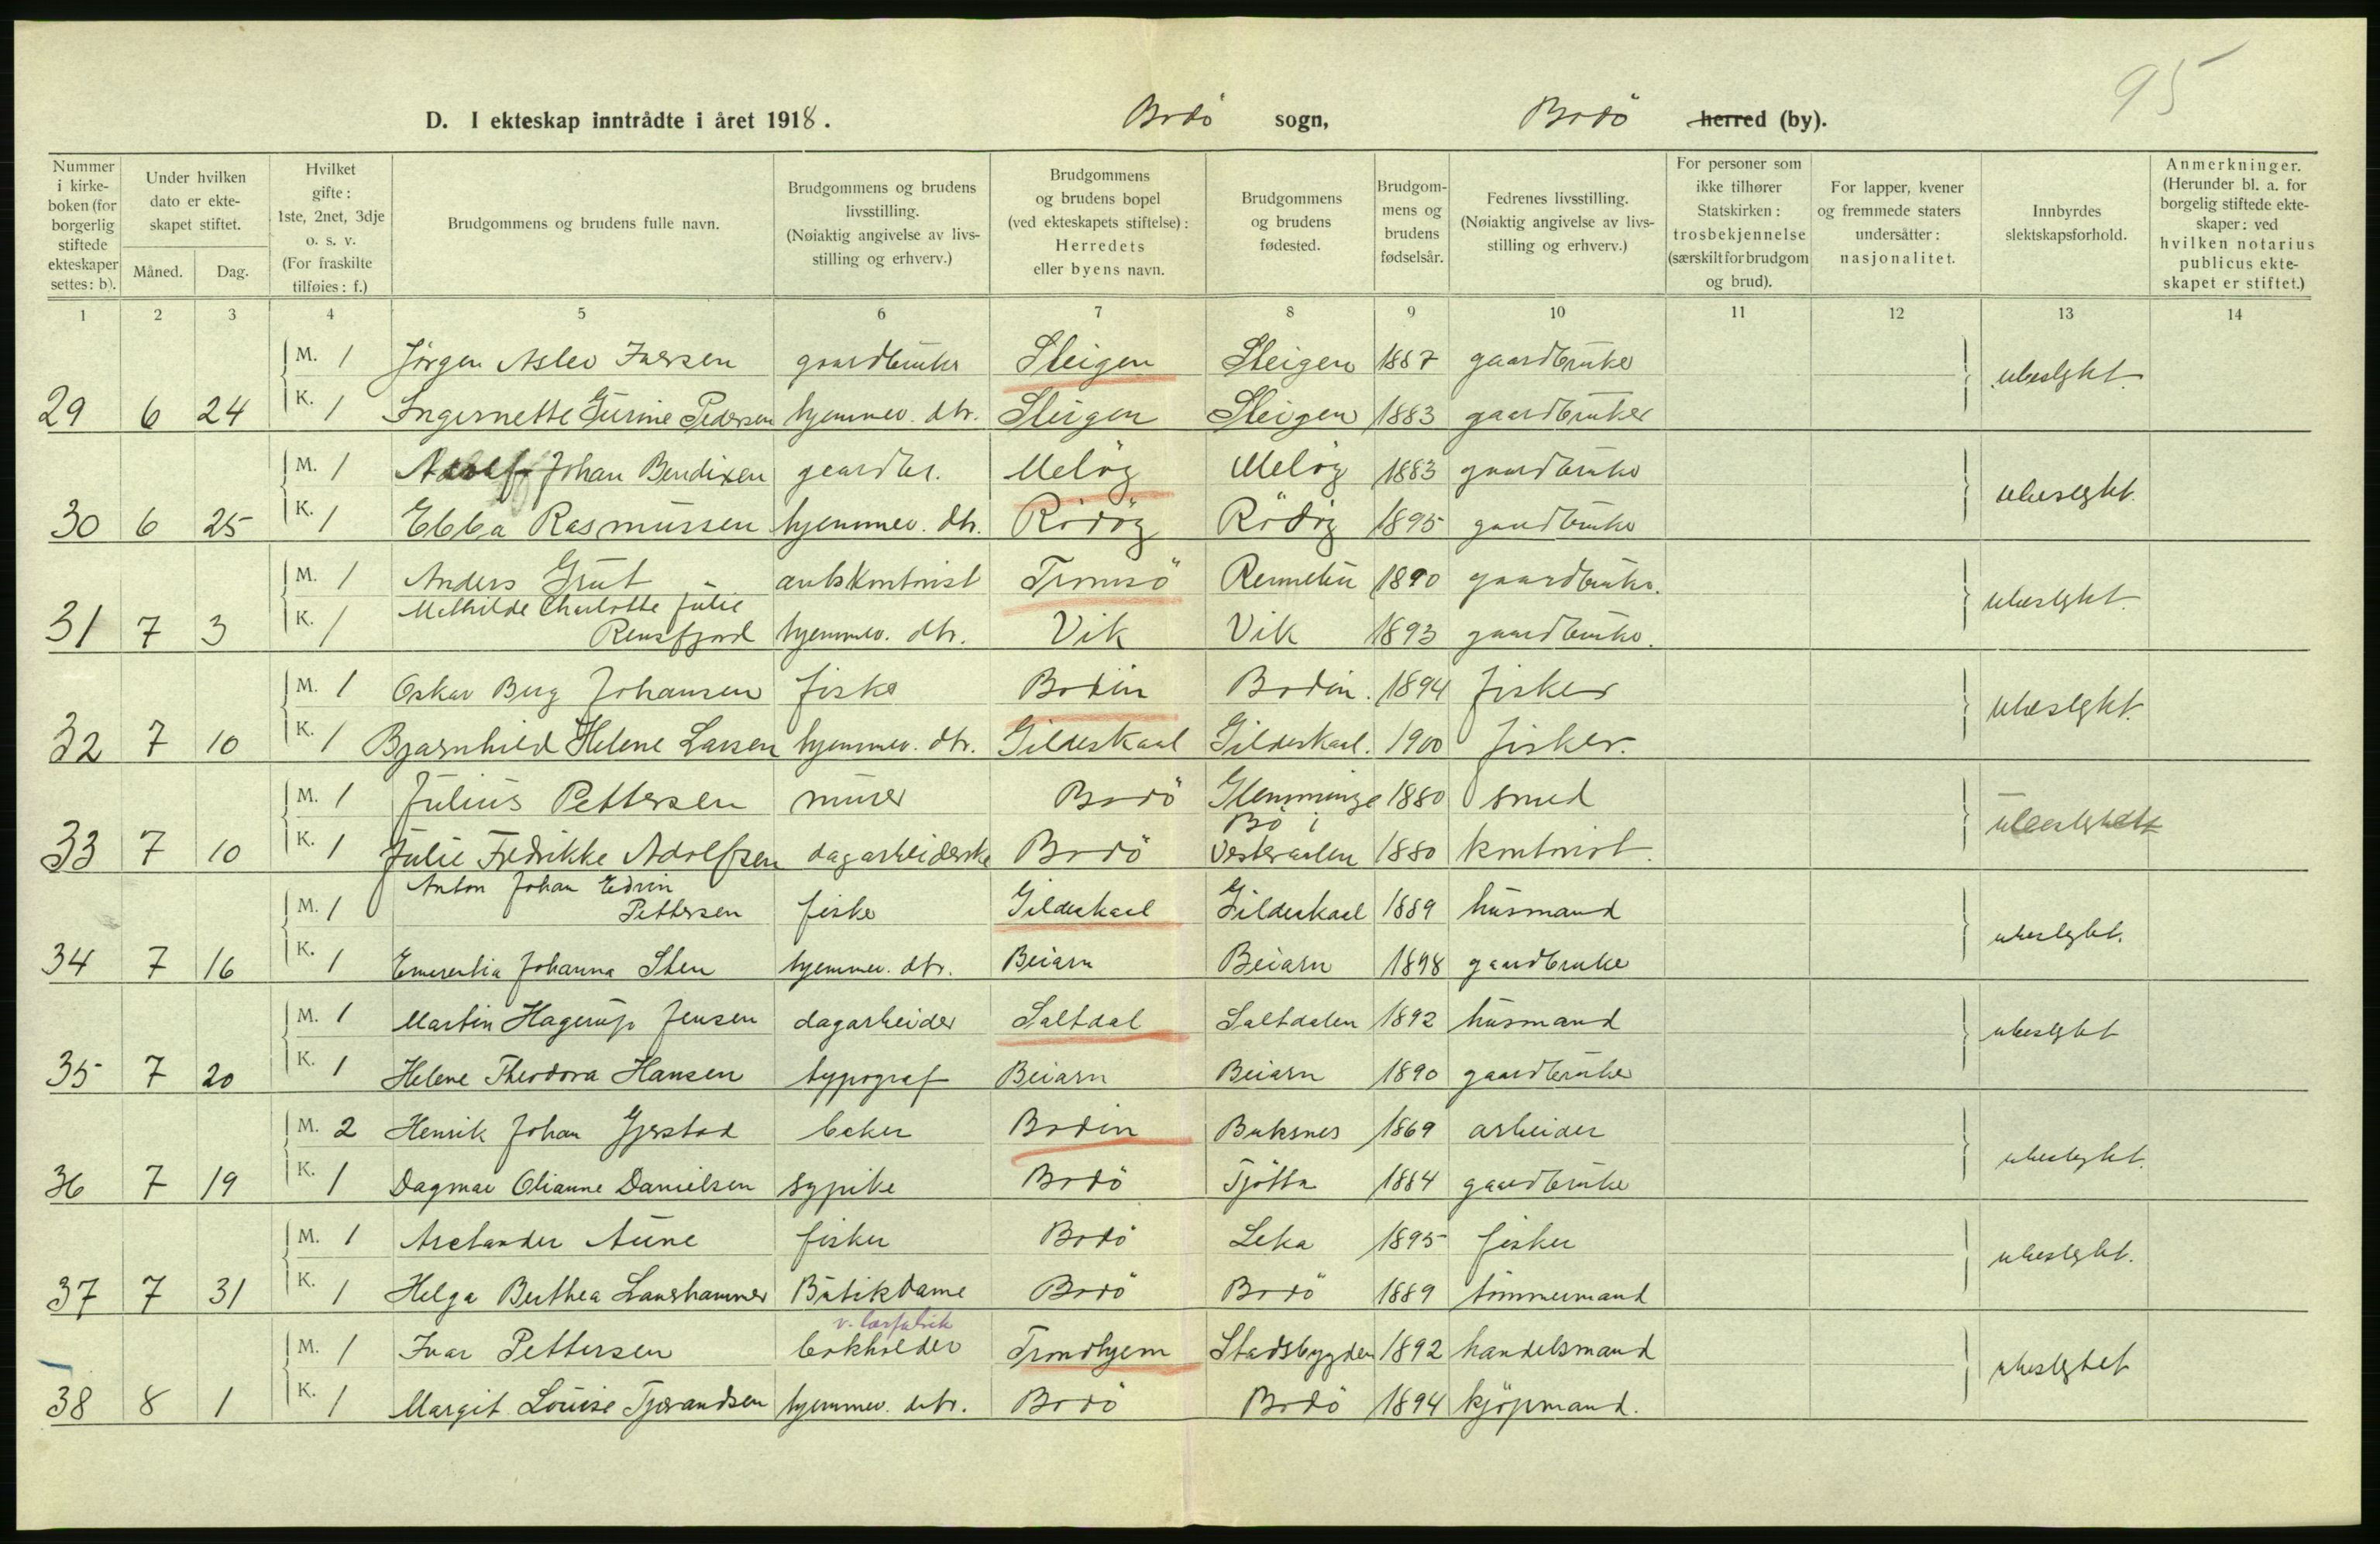 95
D. I ekteskap inntrådte i året 1918. Bodö sogn, Bodö herred (by).
Nummer i kirkeboken (for borgerlig stiftede ekteskaper settes: b).
Under hvilken dato er ekteskapet stiftet.
Måned. Dag.
Hvilket gifte: 1ste, 2net, 3dje o. s. v. (For fraskilte tilføies: f.)
Brudgommens og brudens fulle navn.
Brudgommens og brudens livsstilling. (Nøiaktig angivelse av livsstilling og erhverv.)
Brudgommens og brudens bopel (ved ekteskapets stiftelse): Herredets eller byens navn.
Brudgommens og brudens fødested.
Brudgommens og brudens fødselsår.
Fedrenes livsstilling. (Nøiaktig angivelse av livsstilling og erhverv.)
For personer som ikke tilhører Statskirken: trosbekjennelse (særskilt for brudgom og brud).
For lapper, kvener og fremmede staters undersåtter: nasjonalitet.
Innbyrdes slektskapsforhold.
Anmerkninger. (Herunder bl. a. for borgelig stiftede ekteskaper: ved hvilken notarius publicus ekteskapet er stiftet.)
1 2 3 4 5 6 7 8 9 10 11 12 13 14
M. 1 Jörgen Aslev Iversen gaardbruker Steigen Steigen 1887 gaardbruker ubeslgkt.
29 6 24 K. 1 Ingernette Gurine Pedersen hjemmev. dtr. Steigen Steigen 1883 gaardbruker
M. 1 Adolf Johan Bendixen gaardbr. Melöy Melöy 1883 gaardbruker ubeslgkt.
30 6 25 K. 1 Ebba Rasmussen hjemmev. dtr. Rödöy Rödöy 1895 gaardbruker
M. 1 Anders Grut amtskontorist Tromsö 1890 gaardbruker. ubeslgkt.
Mathilde Charlotte Julie
31 7 3 K. 1 Rensfjord hjemmev. dtr. Vik Vik 1893 gaardbruker.
M. 1 Oskar Berg Johansen fisker Bodin Bodin. 1894 fisker ubeslgkt.
32 7 10 K. 1 Bjarnhild Helene Larsen hjemmev. dtr. Gildeskaal Gildeskaal. 1900 fisker.
M. 1 Julius Pettersen murer Bodö Glemminge 1880 smed ubeslgktet
Bö i
33 7 10 K. 1 Julie Fredrikke Adolfsen dagarbeiderske Bodö Vesteraalen 1880 kontorist.
Anton Johan Edvin
M. 1 Pettersen fisker Gildeskaal Gildeskaal 1889 husmand ubeslgkt.
34 7 16 K. 1 Emerentia Johanna Sten hjemmev. dtr. Beiarn Beiarn 1898 gaardbruker
M. 1 Martin Hagerup Jensen dagarbeider Saltdal Saltdalen 1892 husmand ubeslgkt
35 7 20 K. 1 Helene Theodora Hansen typograf Beiarn Beiarn 1890 gaardbruker
M. 2 Henrik Johan Gjerstad baker Bodin Buksnes 1869 arbeider ubeslgkt.
36 7 19 K. 1 Dagmar Olianne Danielsen sypike Bodö Tjötta 1884 gaardbruker
M. 1 Arelander Aune fisker Bodö Leka 1895 fisker ubeslgkt.
37 7 31 K. 1 Helga Berthea Langhammer Butikdame Bodö Bodö 1889 tömmermand
v. lærfabrik
M. 1 Ivar Pettersen bokholder Trondhjem Stadsbygden 1892 handelsmand ubeslgtet
38 8 1 K. 1 Margit Louise Tjærandsen hjemmev. dtr. Bodö Bodö 1894 kjöpmand.